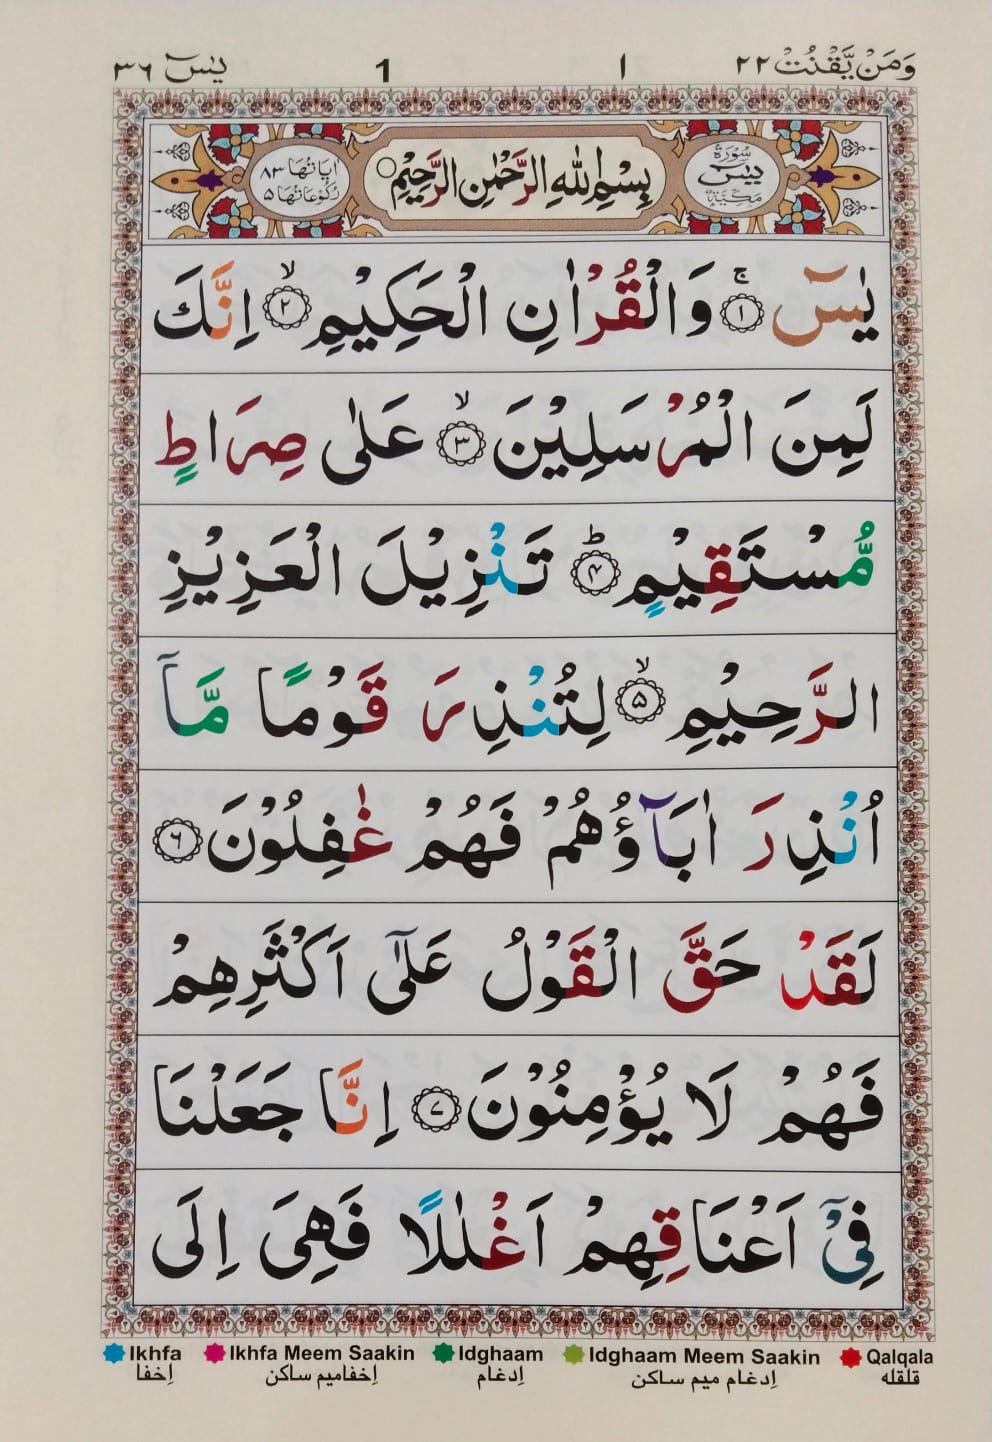 وَمَنْ يَّقْنُتْ ٢٢ ١ 1 يٰسٓ ٣٦
سُوْرَةُ يٰسٓ مَكِّيَّةٌ بِسْمِ اللّٰهِ الرَّحْمٰنِ الرَّحِيْمِ اٰيَاتُهَا ٨٣ رُكُوْعَاتُهَا ٥
يٰسٓ ۚ ﴿١﴾ وَالْقُرْاٰنِ الْحَكِيْمِ ۙ ﴿٢﴾ اِنَّكَ
لَمِنَ الْمُرْسَلِيْنَ ۙ ﴿٣﴾ عَلٰى صِرَاطٍ
مُّسْتَقِيْمٍ ؕ ﴿۴﴾ تَنْزِيْلَ الْعَزِيْزِ
الرَّحِيْمِ ۙ ﴿۵﴾ لِتُنْذِرَ قَوْمًا مَّاۤ
اُنْذِرَ اٰبَآؤُهُمْ فَهُمْ غٰفِلُوْنَ ﴿۶﴾
لَقَدْ حَقَّ الْقَوْلُ عَلٰۤى اَكْثَرِهِمْ
فَهُمْ لَا يُؤْمِنُوْنَ ﴿۷﴾ اِنَّا جَعَلْنَا
فِيْۤ اَعْنَاقِهِمْ اَغْلٰلًا فَهِىَ اِلَى
Ikhfa Ikhfa Meem Saakin Idghaam Idghaam Meem Saakin Qalqala
اِخفا اِخفامیم ساکن اِدغام اِدغام میم ساکن قلقله